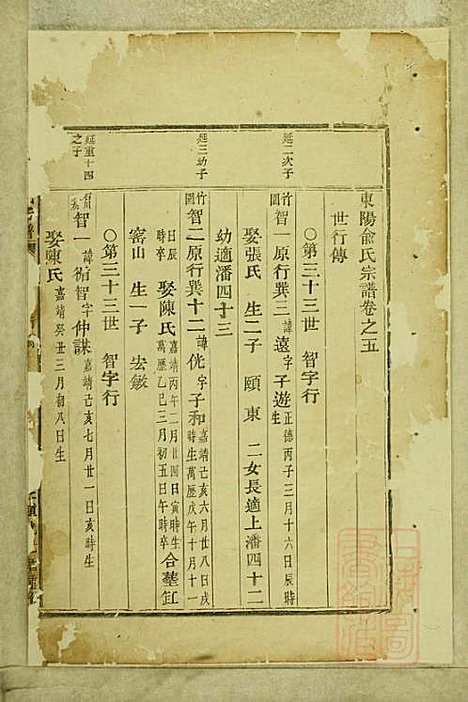 東陽俞氏宗譜卷之五
世行傳
○第三十三世 智字行
延二次子
竹園 智一 原行巽三 諱遠 字子遊 正德丙子三月十六日辰時生
娶張氏 生二子 頤 東 二女長適上潘四十二
幼適潘四十三
延三幼子
竹園 智二 原行巽十二 諱侊 字子和 嘉靖己亥六月廿八日戌時生 萬歷戊午十月十一日辰時卒 娶陳氏 嘉靖丙午二月廿四日寅時生 萬歷乙巳三月初五日午時卒 合葬缸
窰山 生一子 宏
○第三十三世 智字行
延重十四之子
智一 諱 智 字仲謀 嘉靖己亥七月廿一日亥時生
娶陳氏 嘉靖癸丑三月初八日生